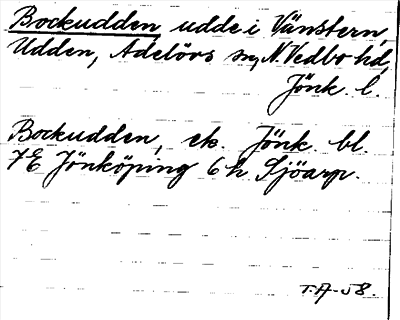 Bockudden, udde i Vänstern,
Udden, Adelövs sn, N. Vedbo hd,
Jönk. l.
Bockudden, ek. Jönk. bl.
7E Jönköping 6h Sjöarp.
T.A-58.